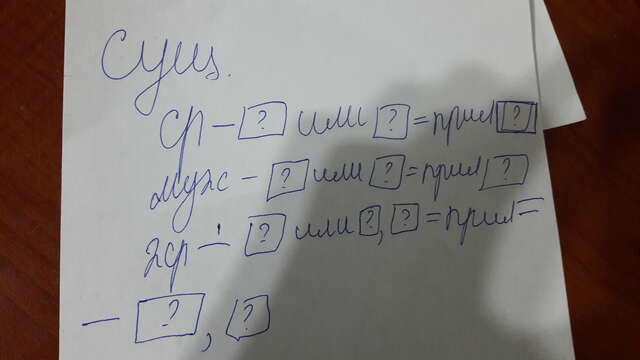 Сущ.
ср - [?] или [?] = прил [?]
муж - [?] или [?] = прил [?]
жср - [?] или [?], [?] = прил -
- [?], [?]